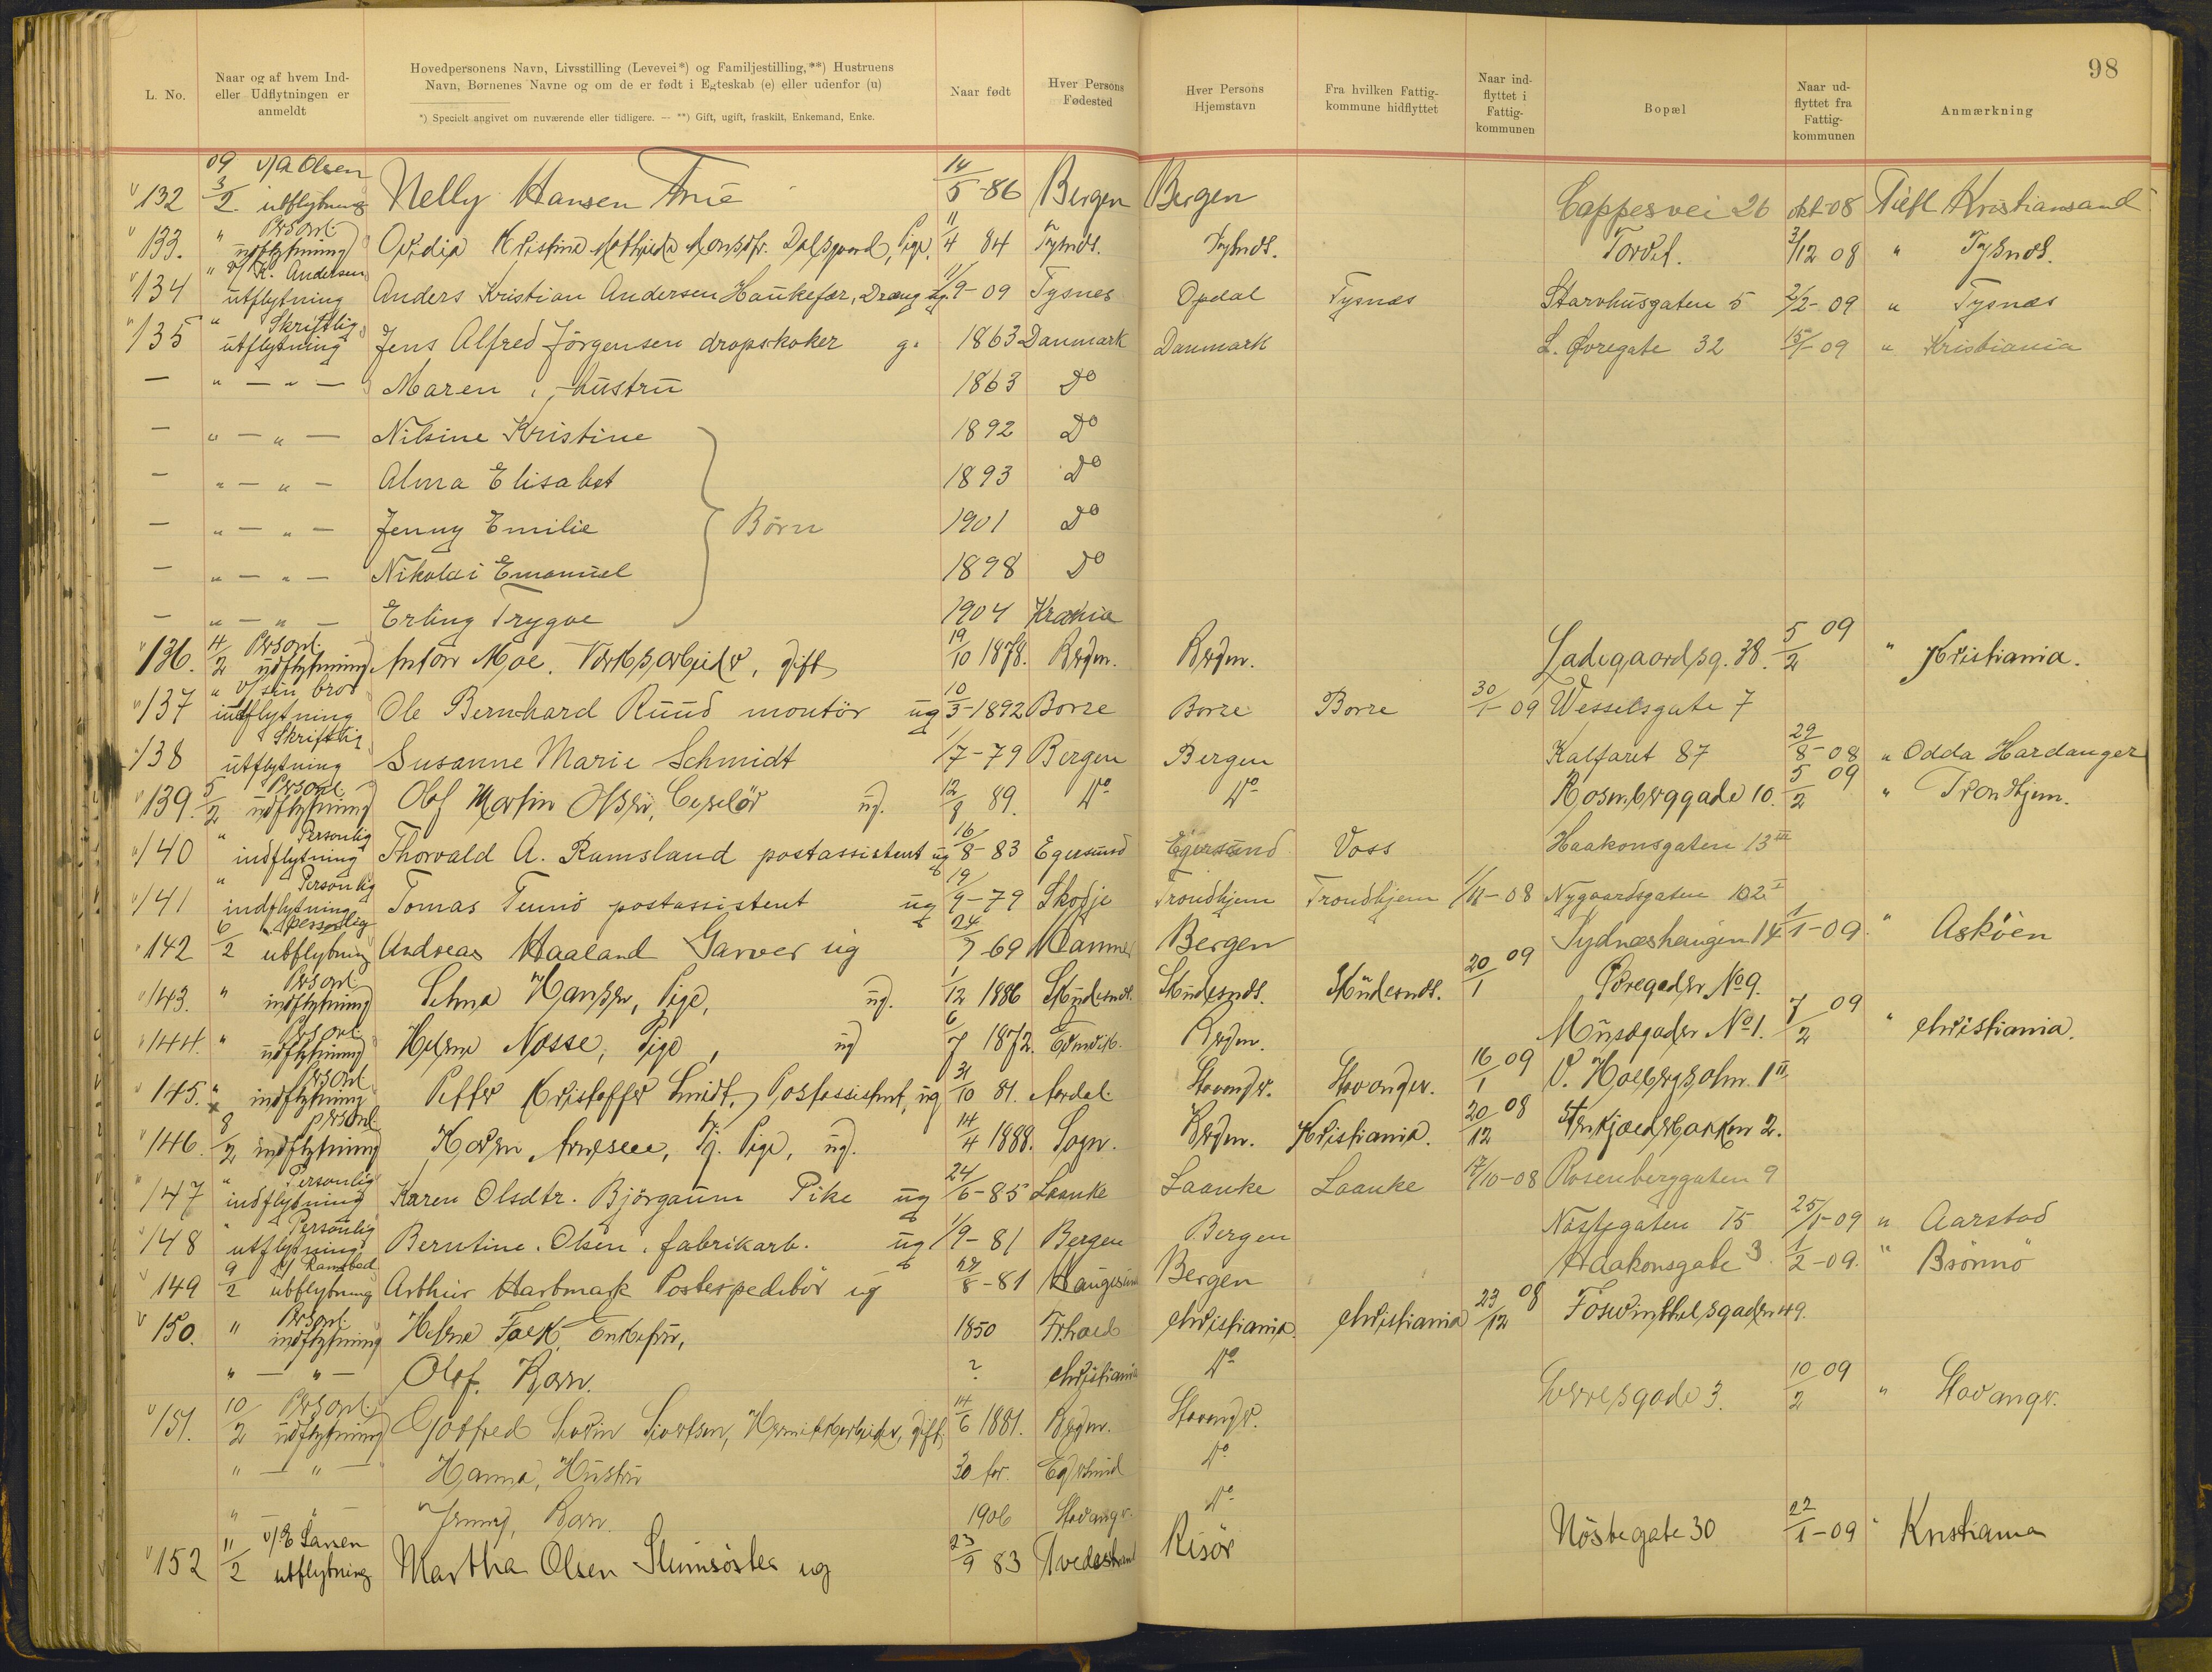 98
L. No.
Naar og af hvem Ind- eller Udflytningen er anmeldt
Hovedpersonens Navn, Livsstilling (Levevei*) og Familjestilling,**) Hustruens Navn, Børnenes Navne og om de er født i Egteskab (e) eller udenfor (u)
*) Specielt angivet om nuværende eller tidligere. — **) Gift, ugift, fraskilt, Enkemand, Enke.
Naar født
Hver Persons Fødested
Hver Persons Hjemstavn
Fra hvilken Fattigkommune hidflyttet
Naar indflyttet i Fattigkommunen
Bopæl
Naar udflyttet fra Fattigkommunen
Anmærkning
132 09 3/2 Olsen utflytning Nelly Hansen Frue 14/5-86 Bergen Bergen Cappesvei 26 okt-08 Tilfl Kristiansand
133. " Personl. udflytning Ovidia Kristine Mathilde Monsdtr. Dalsgaard, Pige, 11/4 84 Tysnæs. Tysnæs. Torvet. 3/12 08 " Tysnæs.
134 " v/ K. Andersen utflytning Anders Kristian Andersen Haukefær, Dræng ug. 1/9-09 Tysnes Opdal Tysnæs Starvhusgaten 5 2/2-09 " Tysnæs
135 " Skriftlig utflytning Jens Alfred Jörgensen dropskoker g. 1863 Danmark Danmark L. Øvregate 32 15/1-09 " Kristiania
— " — " — Maren, hustru 1863 Do
— " — " — Nilsine Kristine 1892 Do
— " — " — Alma Elisabet 1893 Do
— " — " — Jenny Emilie Börn 1901 Do
— " — " — Nikolai Emanuel 1898 Do
— " — " — Erling Trygve 1904 Krania
136. 4/2 Personl. udflytning Anton Moe, Verksarbeider, gift 19/10 1878. Bergen. Bergen. Ladegaardsg. 38. 5/2 09 " Kristiania.
137 " v/ sin bror indflytning Ole Bernhard Ruud montör ug 10/3-1892 Borre Borre Borre 30/1-09 Wesselsgate 7
138 Skriftlig utflytning Susanne Marie Schmidt 1/7-79 Bergen Bergen Kalfaret 87 29/8-08 " Odda Hardanger
139. 5/2 Personl. udflytning Olaf Martin Olsen, Ciselör ug. 12/8 89. Do Do Rosenberggade 10. 5/2 09 " Trondhjem.
140 " Personlig indflytning Thorvald A. Ramsland postassistent ug 16/8-83 Egersund Egersund Voss Haakonsgaten 13 III
141 " Personlig indflytning Tomas Tennö postassistent ug 19/9-79 Skodje Trondhjem Trondhjem 1/11-08 Nygaardsgaten 102 I
142 6/2 personlig utflytning Andreas Haaland Garver ug 24/7-69 Bergen Sydneshaugen 14 1/1-09. " Asköen
143. " Personl. indflytning Selma Hansen, Pige, ug. 1/12 1886 Skudesnæs. Skudesnæs. Skudesnæs. 20/1 09 Øvregaden No 9.
144. " Personl. udflytning Helene Nasse, Pige, ug 6/7 1872. Bergen. Musegaden No 1. 7/2 09 " Christiania.
145. " Personl. indflytning Petter Kristoffer Smidt, Postassistent, ug 31/10 81. Aardal. Stavanger. Stavanger. 16/1 09 V. Holbergsalm. 1 II
146. 8/2 Personl. indflytning Karen Arnesen, Tj. Pige, ug. 14/4 1888. Sogn. Bergen. Kristiania. 20/12 08 Stenkjælderbakken 2.
147 " Personlig indflytning Karen Olsdtr. Björgaum Pike ug 24/6-85 Laanke Laanke Laanke 17/10-08 Rosenberggaten 9
148 " Personlig utflytning Berntine Olsen, fabrikarb. ug 1/9-81 Bergen Bergen Nöstegaten 15 25/1-09 " Aarstad
149 9/2 utflytning Arthur Hartmark Postexpeditör ug 27/8-81 Haugesund Bergen Haakonsgate 3 1/2-09. " Brönnö
150. " Personl. indflytning Helene Falk, Enkefru, 1850 Frhald Christiania. Christiania 23/12 08 Foswinckelsgaden 49.
" — " — Olaf, Barn. ? Christiania Do
151. 10/2 Personl. udflytning Gotfred Severin Sivertsen, Hermetikarbeider, gift, 14/6 1881. Bergen. Stavanger. Sverresgade 3. 10/2 09 " Stavanger.
" — " — Hanna, Hustru 30 for. Egersund Do
" — " — Jenny, Barn. 1906 Stavanger. Do
152 11/2 v/ E Larsen utflytning Martha Olsen Slumsöster ug 23/9 83 Tvedestrand Risör Nöstegate 30 22/1-09 " Kristiania